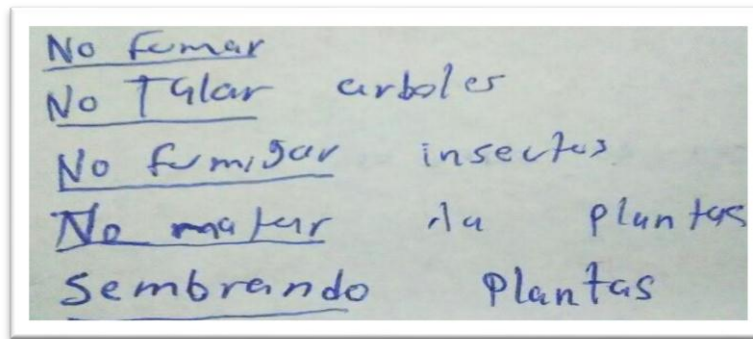 No fumar
No Talar arboles
No fumigar insectos
No matar la plantas
Sembrando Plantas